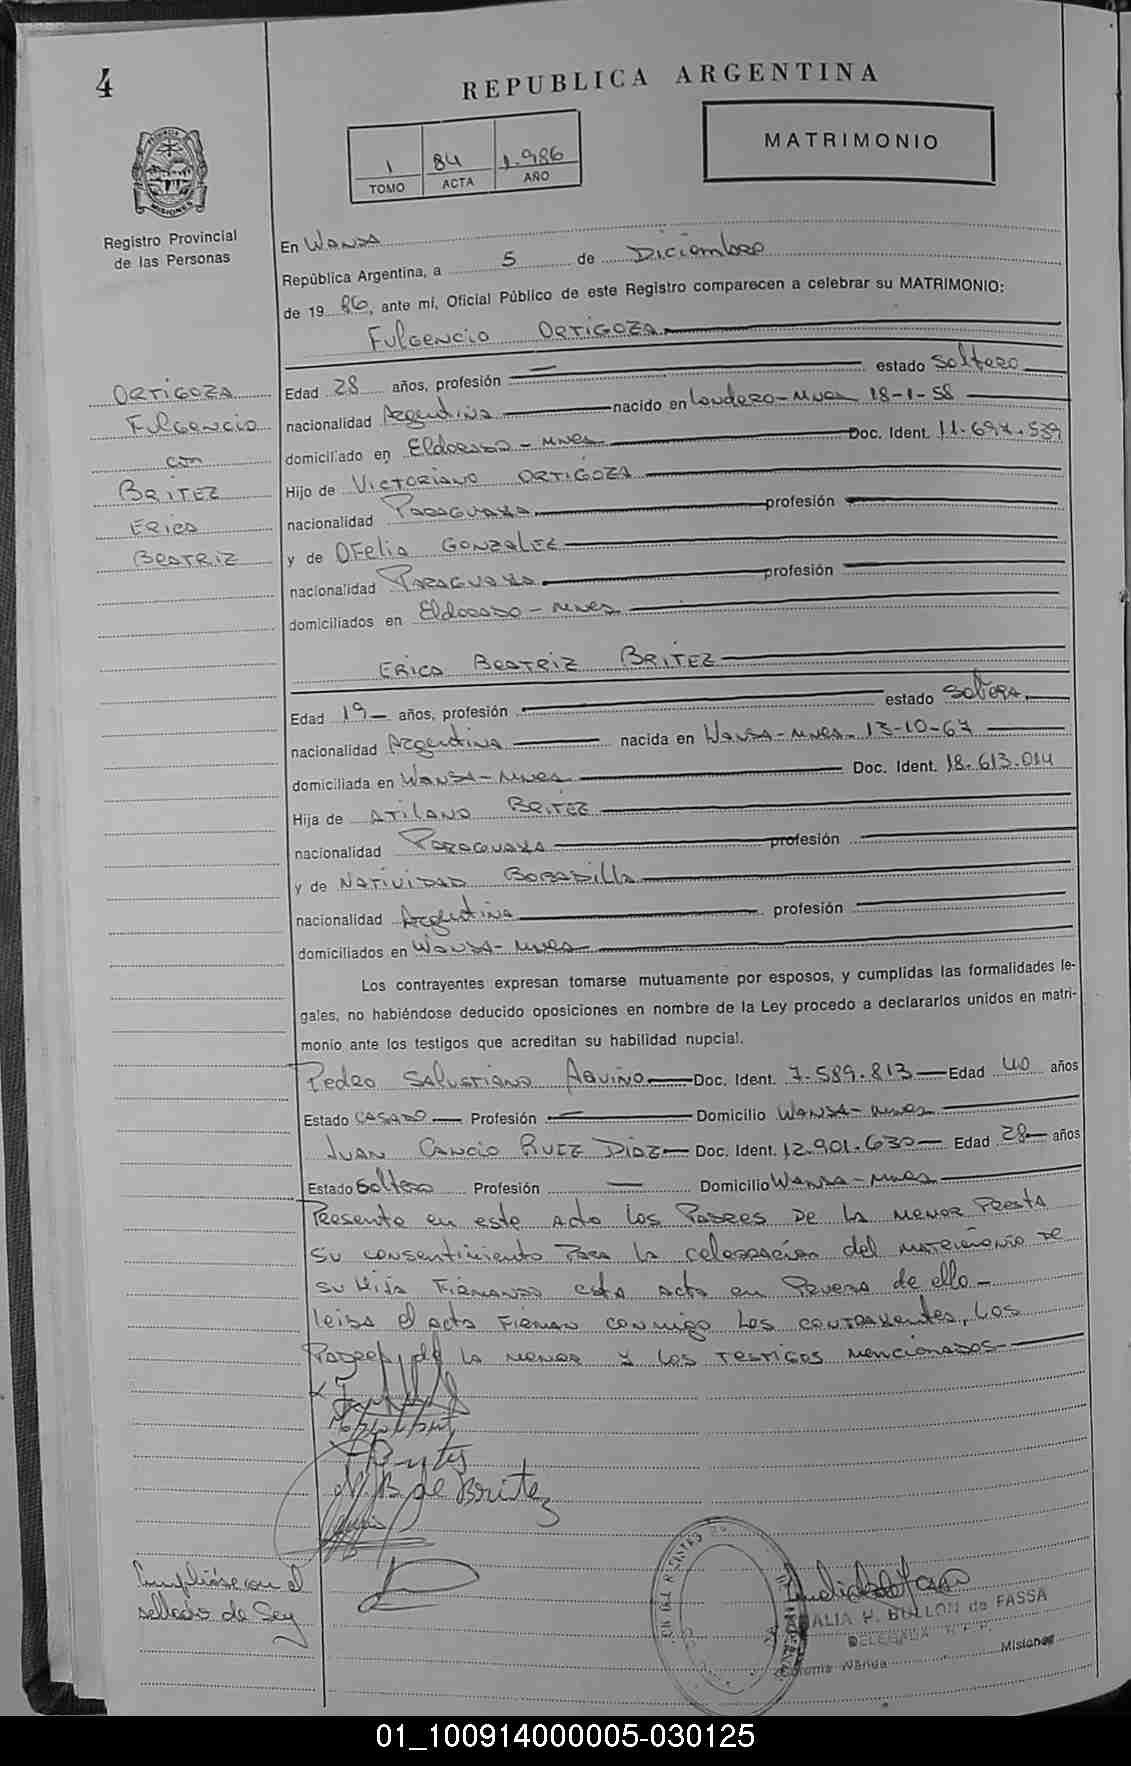 4
REPUBLICA ARGENTINA
MATRIMONIO
1 84 1.986
TOMO ACTA AÑO
Registro Provincial
de las Personas
En WANDA
República Argentina, a 5 de Diciembre
de 19 86, ante mí, Oficial Público de este Registro comparecen a celebrar su MATRIMONIO:
Fulgencio ORTIGOZA
ORTIGOZA
Fulgencio
con
BRITEZ
ERICA
BEATRIZ
Edad 28 años, profesión — estado Soltero
nacionalidad Argentina nacido en Mnes 18-1-58
domiciliado en Eldorado - Mnes Doc. Ident.
Hijo de VICTORIANO ORTIGOZA
nacionalidad PARAGUAYA profesión
y de OFelia GONZALEZ
nacionalidad PARAGUAYA profesión
domiciliados en Eldorado - Mnes
ERICA BEATRIZ BRITEZ
Edad 19 — años, profesión estado Soltera
nacionalidad Argentina nacida en WANDA - Mnes. 13-10-67
domiciliada en WANDA - Mnes Doc. Ident. 18.613.014
Hija de ATILANO BRITEZ
nacionalidad PARAGUAYA profesión
y de NATIVIDAD BOBADILLA
nacionalidad Argentina profesión
domiciliados en WANDA - Mnes
Los contrayentes expresan tomarse mutuamente por esposos, y cumplidas las formalidades le-
gales, no habiéndose deducido oposiciones en nombre de la Ley procedo a declararlos unidos en matri-
monio ante los testigos que acreditan su habilidad nupcial.
Pedro SALUSTIANO AQUINO Doc. Ident. 7.589.813 Edad 40 años
Estado CASADO Profesión — Domicilio WANDA - Mnes
JUAN CANCIO RUIZ DIAZ Doc. Ident. 12.901.630 Edad 28 años
Estado Soltero Profesión — Domicilio WANDA - Mnes
Presente en este Acto los PADRES DE LA MENOR PRESTA
SU CONSENTIMIENTO PARA LA celebración del MATRIMONIO DE
SU HIJA FIRMANDO esta Acta en Prueba de ello —
leida el acta FIRMAN conmigo los CONTRAYentes, los
PADRES de LA MENOR Y LOS TESTIGOS MENCIONADOS
N. B. de Britez
Cumplióse con el
sellado de Ley
ALIA H. BULLON de FASSA
DELEGADA R.P.P.
Colonia Wanda Misiones
01_100914000005-030125